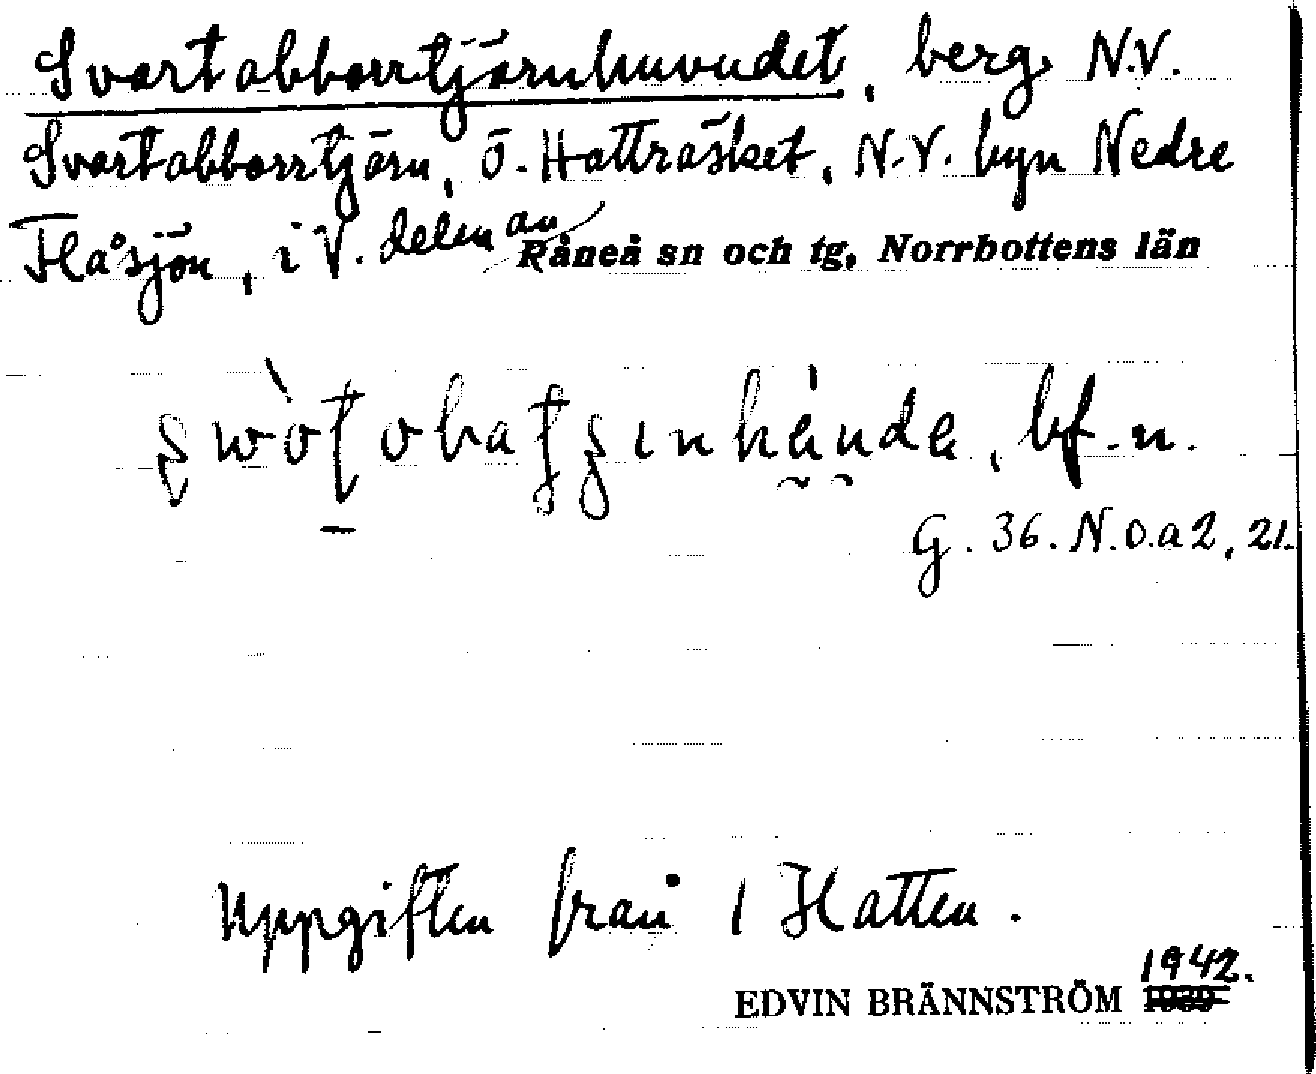 Svartabborrtjärnhuvudet, berg N.V.
Svartabborrtjärn, ö. Hatträsket, N.V. byn Nedre
Flåsjön, i V. delen av Råneå sn och tg, Norrbottens län
bf. n.
G. 36. N.O.a2, 21.
Uppgiften från 1 Hatten.
1942.
EDVIN BRÄNNSTRÖM 1939